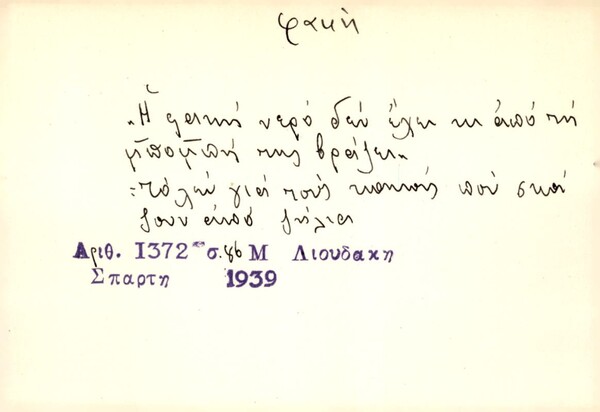 φακή
"Ἡ φακῆ νερό δέν ἔχει κι ἀπό τή
μπομπή της βράζει"
=τό λέν γιά τούς κακούς πού σκά
ζουν ἀπό ζήλια
Αριθ. 1372 σ.86 Μ Λιουδακη
Σπαρτη 1939